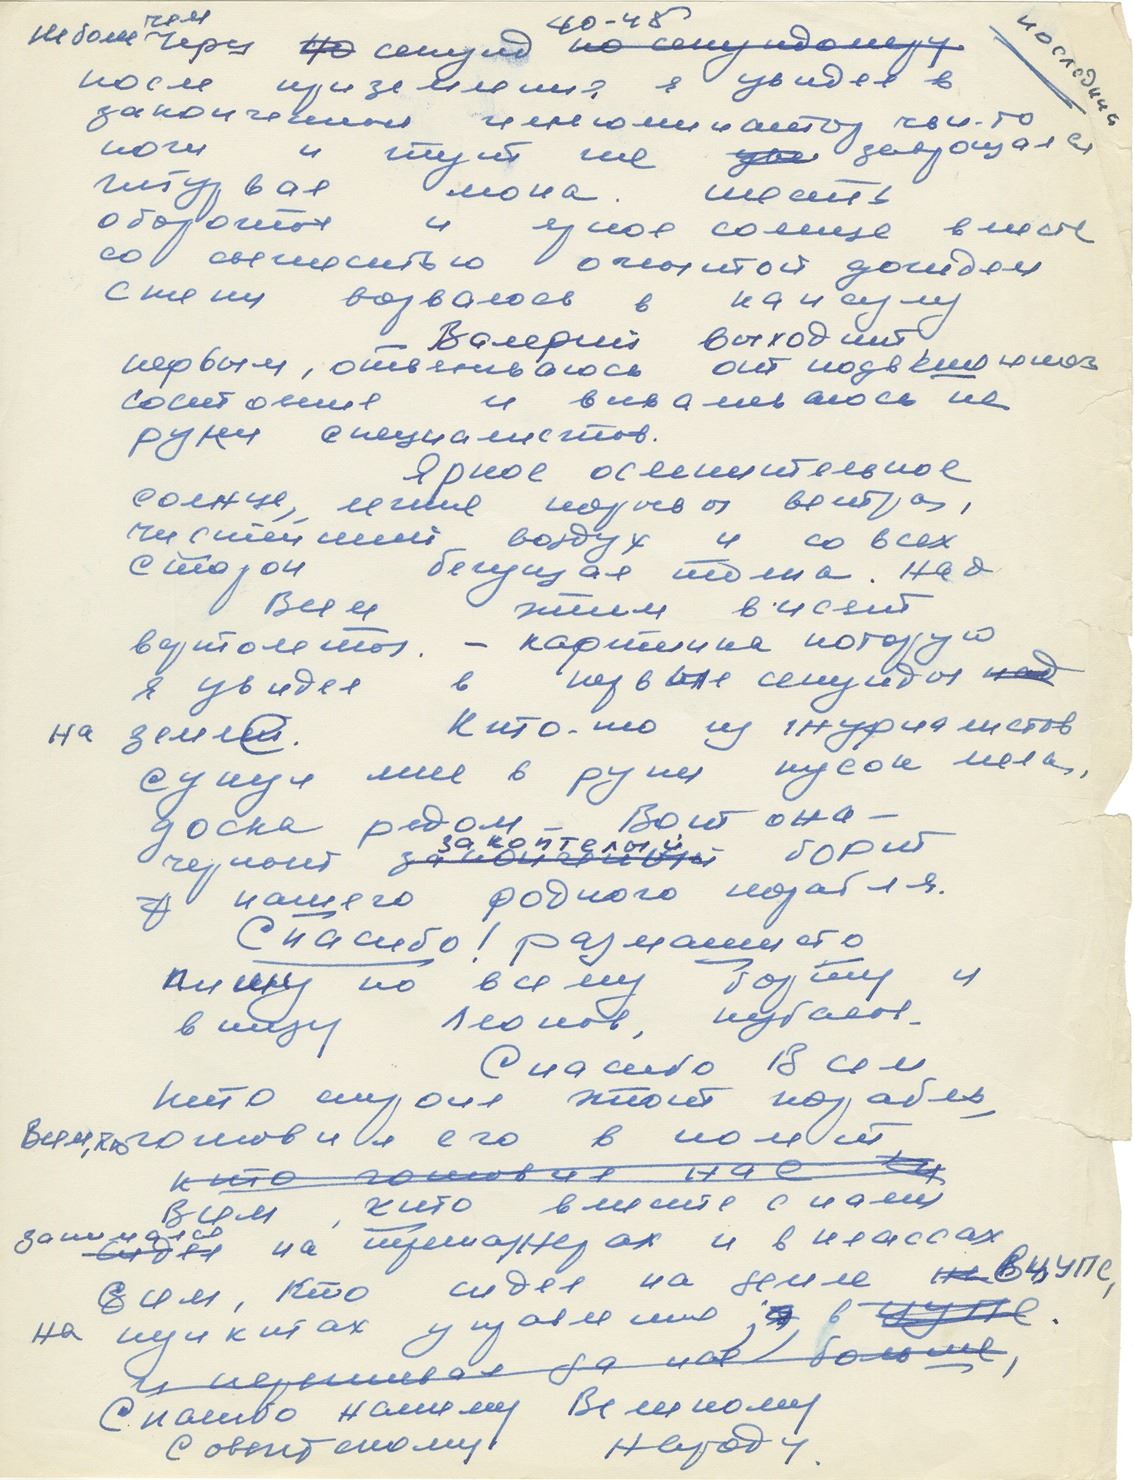 последний
не более чем через 40-45 секунд по секундомеру
после приземления я увидел в
закопченный иллюминатор чьи-то
ноги и тут же завращался
штурвал люка. шесть
оборотов и яркое солнце вместе
со свежестью омытой дождем
степи ворвалось в капсулу
Валерий выходит
первым, отвечиваюсь от подв
состояние и вываливаюсь на
руки специалистов.
Яркое ослепительное
солнце, легкие порывы ветра,
чистейший воздух и со всех
сторон бегущая толпа. Над
Всем этим висят
вертолеты. – картина которую
я увидел в первые секунды над
на земле. Кто-то из журналистов
сунул мне в руки кусок мела,
доска рядом Вот она –
закоптелый
черный закопченный борт
нашего родного корабля.
Спасибо! размашисто
пишу по всему борту и
внизу Леонов, Кубасов.
Спасибо Всем
кто строил этот корабль,
Всем, кто готовил его в полет
кто готовил нас
Всем, кто вместе с нами
занимался сидел на тренажерах и в классах
Всем, Кто сидел на земле в ЦУПе,
на пунктах управления, в ЦУПе.
и переживал за нас больше,
Спасибо нашему Великому
Советскому Народу.